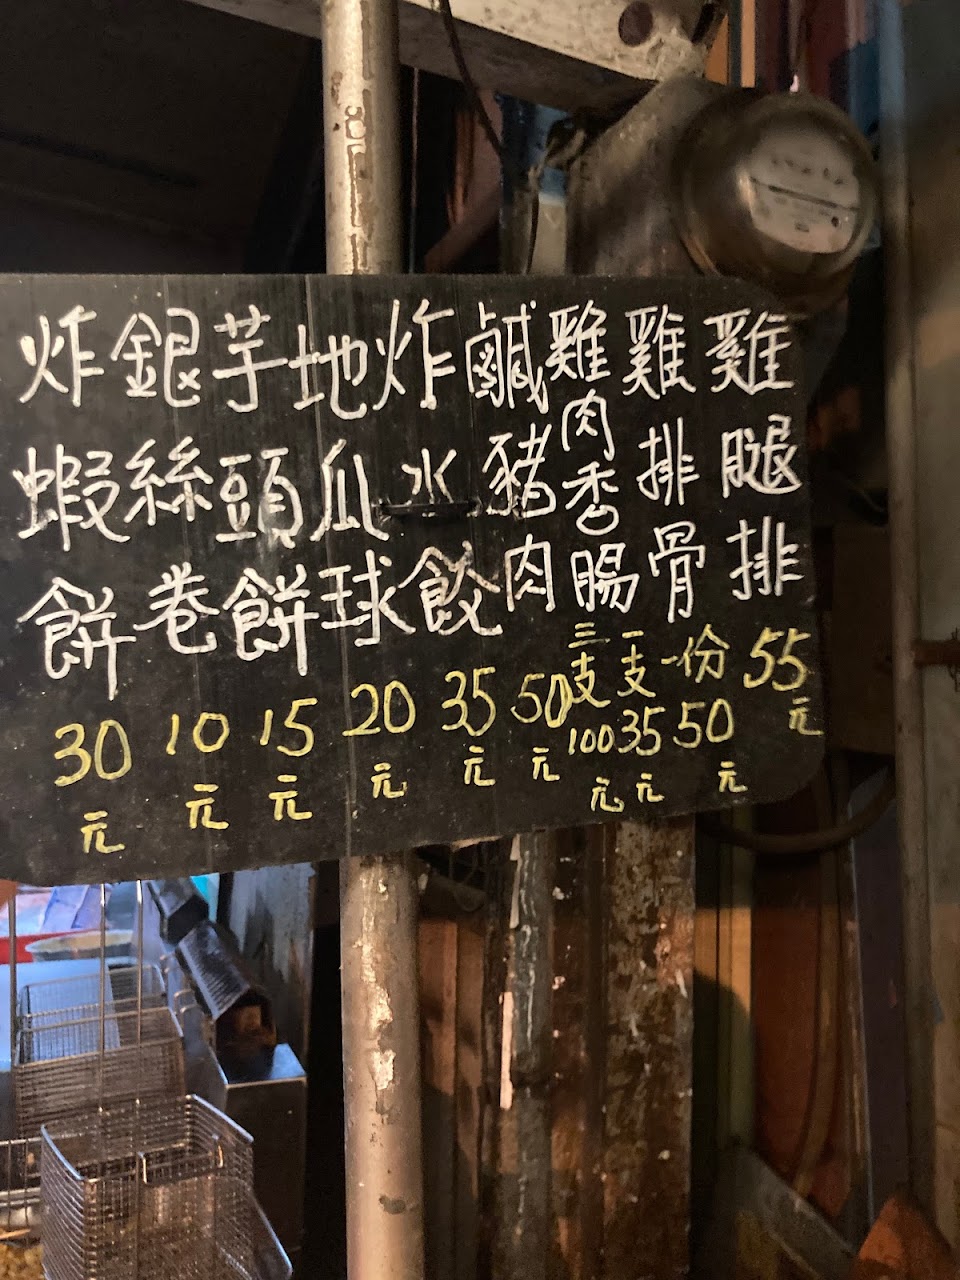 雞腿排55元
雞排骨一份50元
雞肉香腸一支35元
三支100元
鹹豬肉50元
炸水餃35元
地瓜球20元
芋頭餅15元
銀絲卷10元
炸蝦餅30元